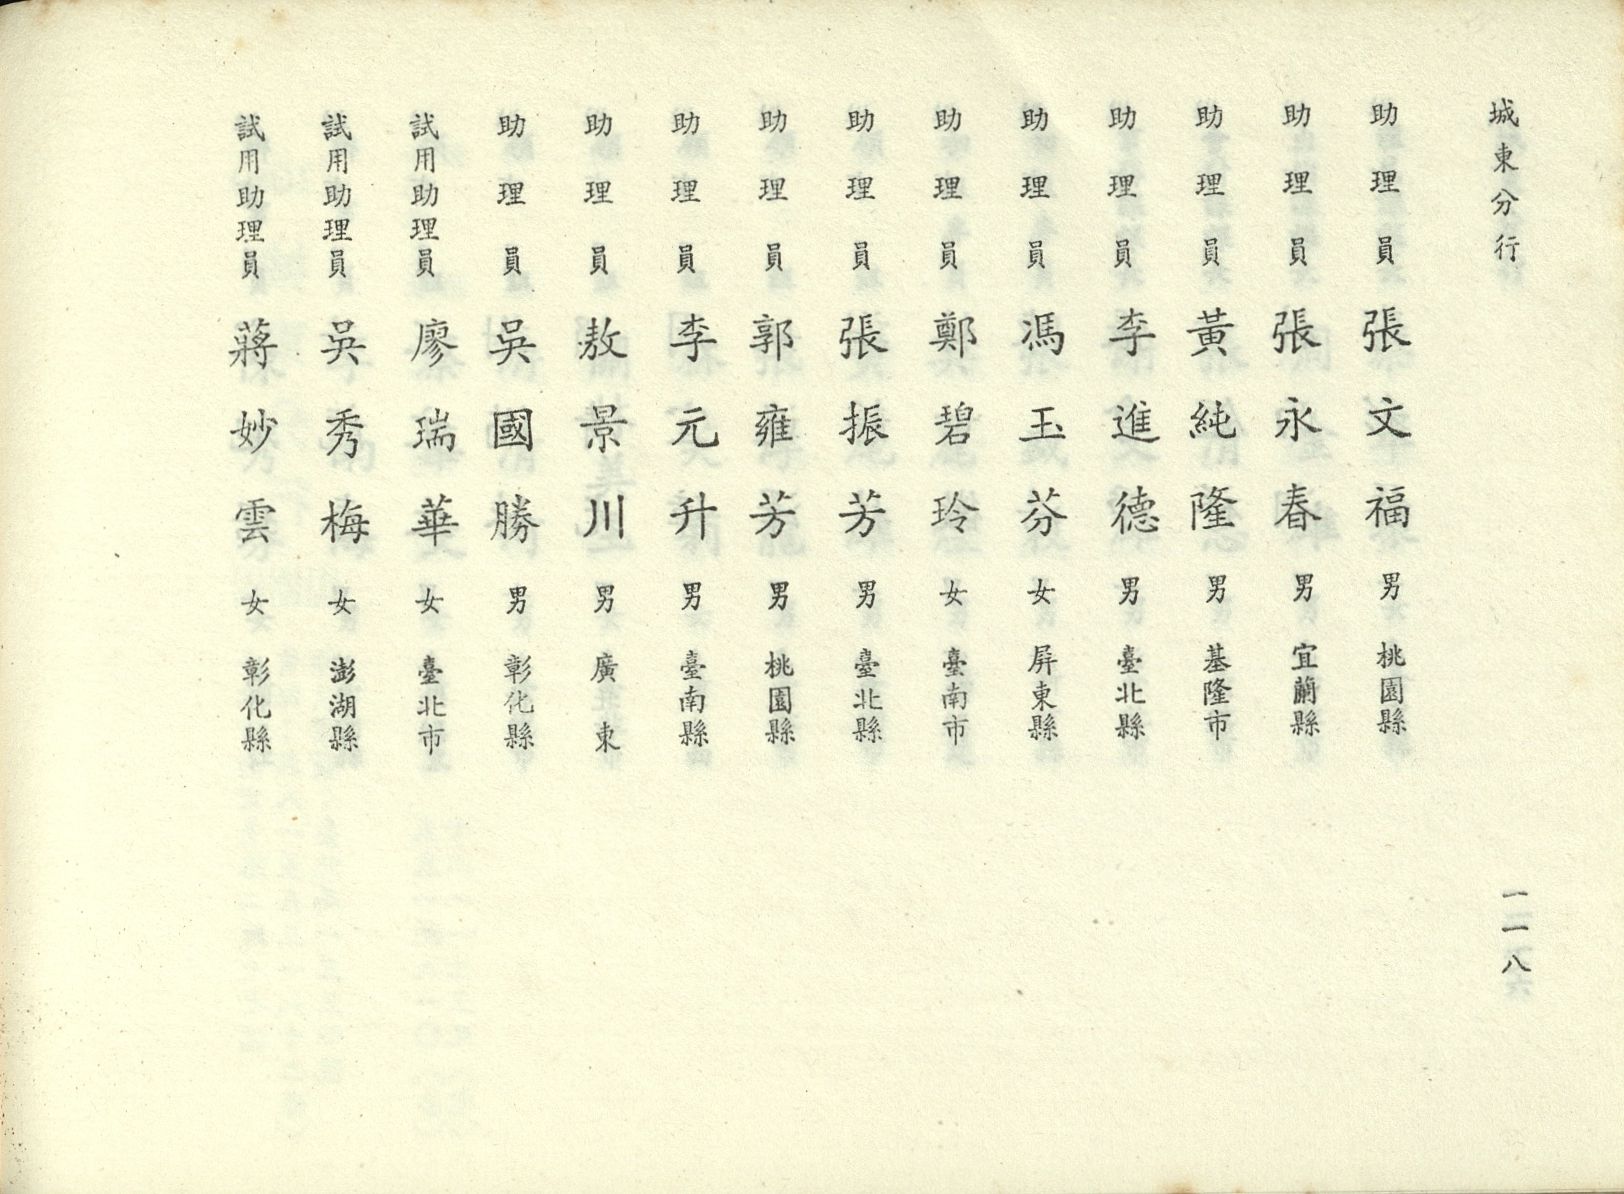 城東分行
一一八
助理員 張文福 男 桃園縣
助理員 張永春 男 宜蘭縣
助理員 黃純隆 男 基隆市
助理員 李進德 男 臺北縣
助理員 馮玉芬 女 屏東縣
助理員 鄭碧玲 女 臺南市
助理員 張振芳 男 臺北縣
助理員 郭雍芳 男 桃園縣
助理員 李元升 男 臺南縣
助理員 敖景川 男 廣東
助理員 吳國勝 男 彰化縣
試用助理員 廖瑞華 女 臺北市
試用助理員 吳秀梅 女 澎湖縣
試用助理員 蔣妙雲 女 彰化縣